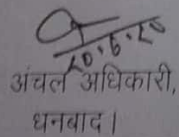 20.6.20
अंचल अधिकारी,
धनबाद।